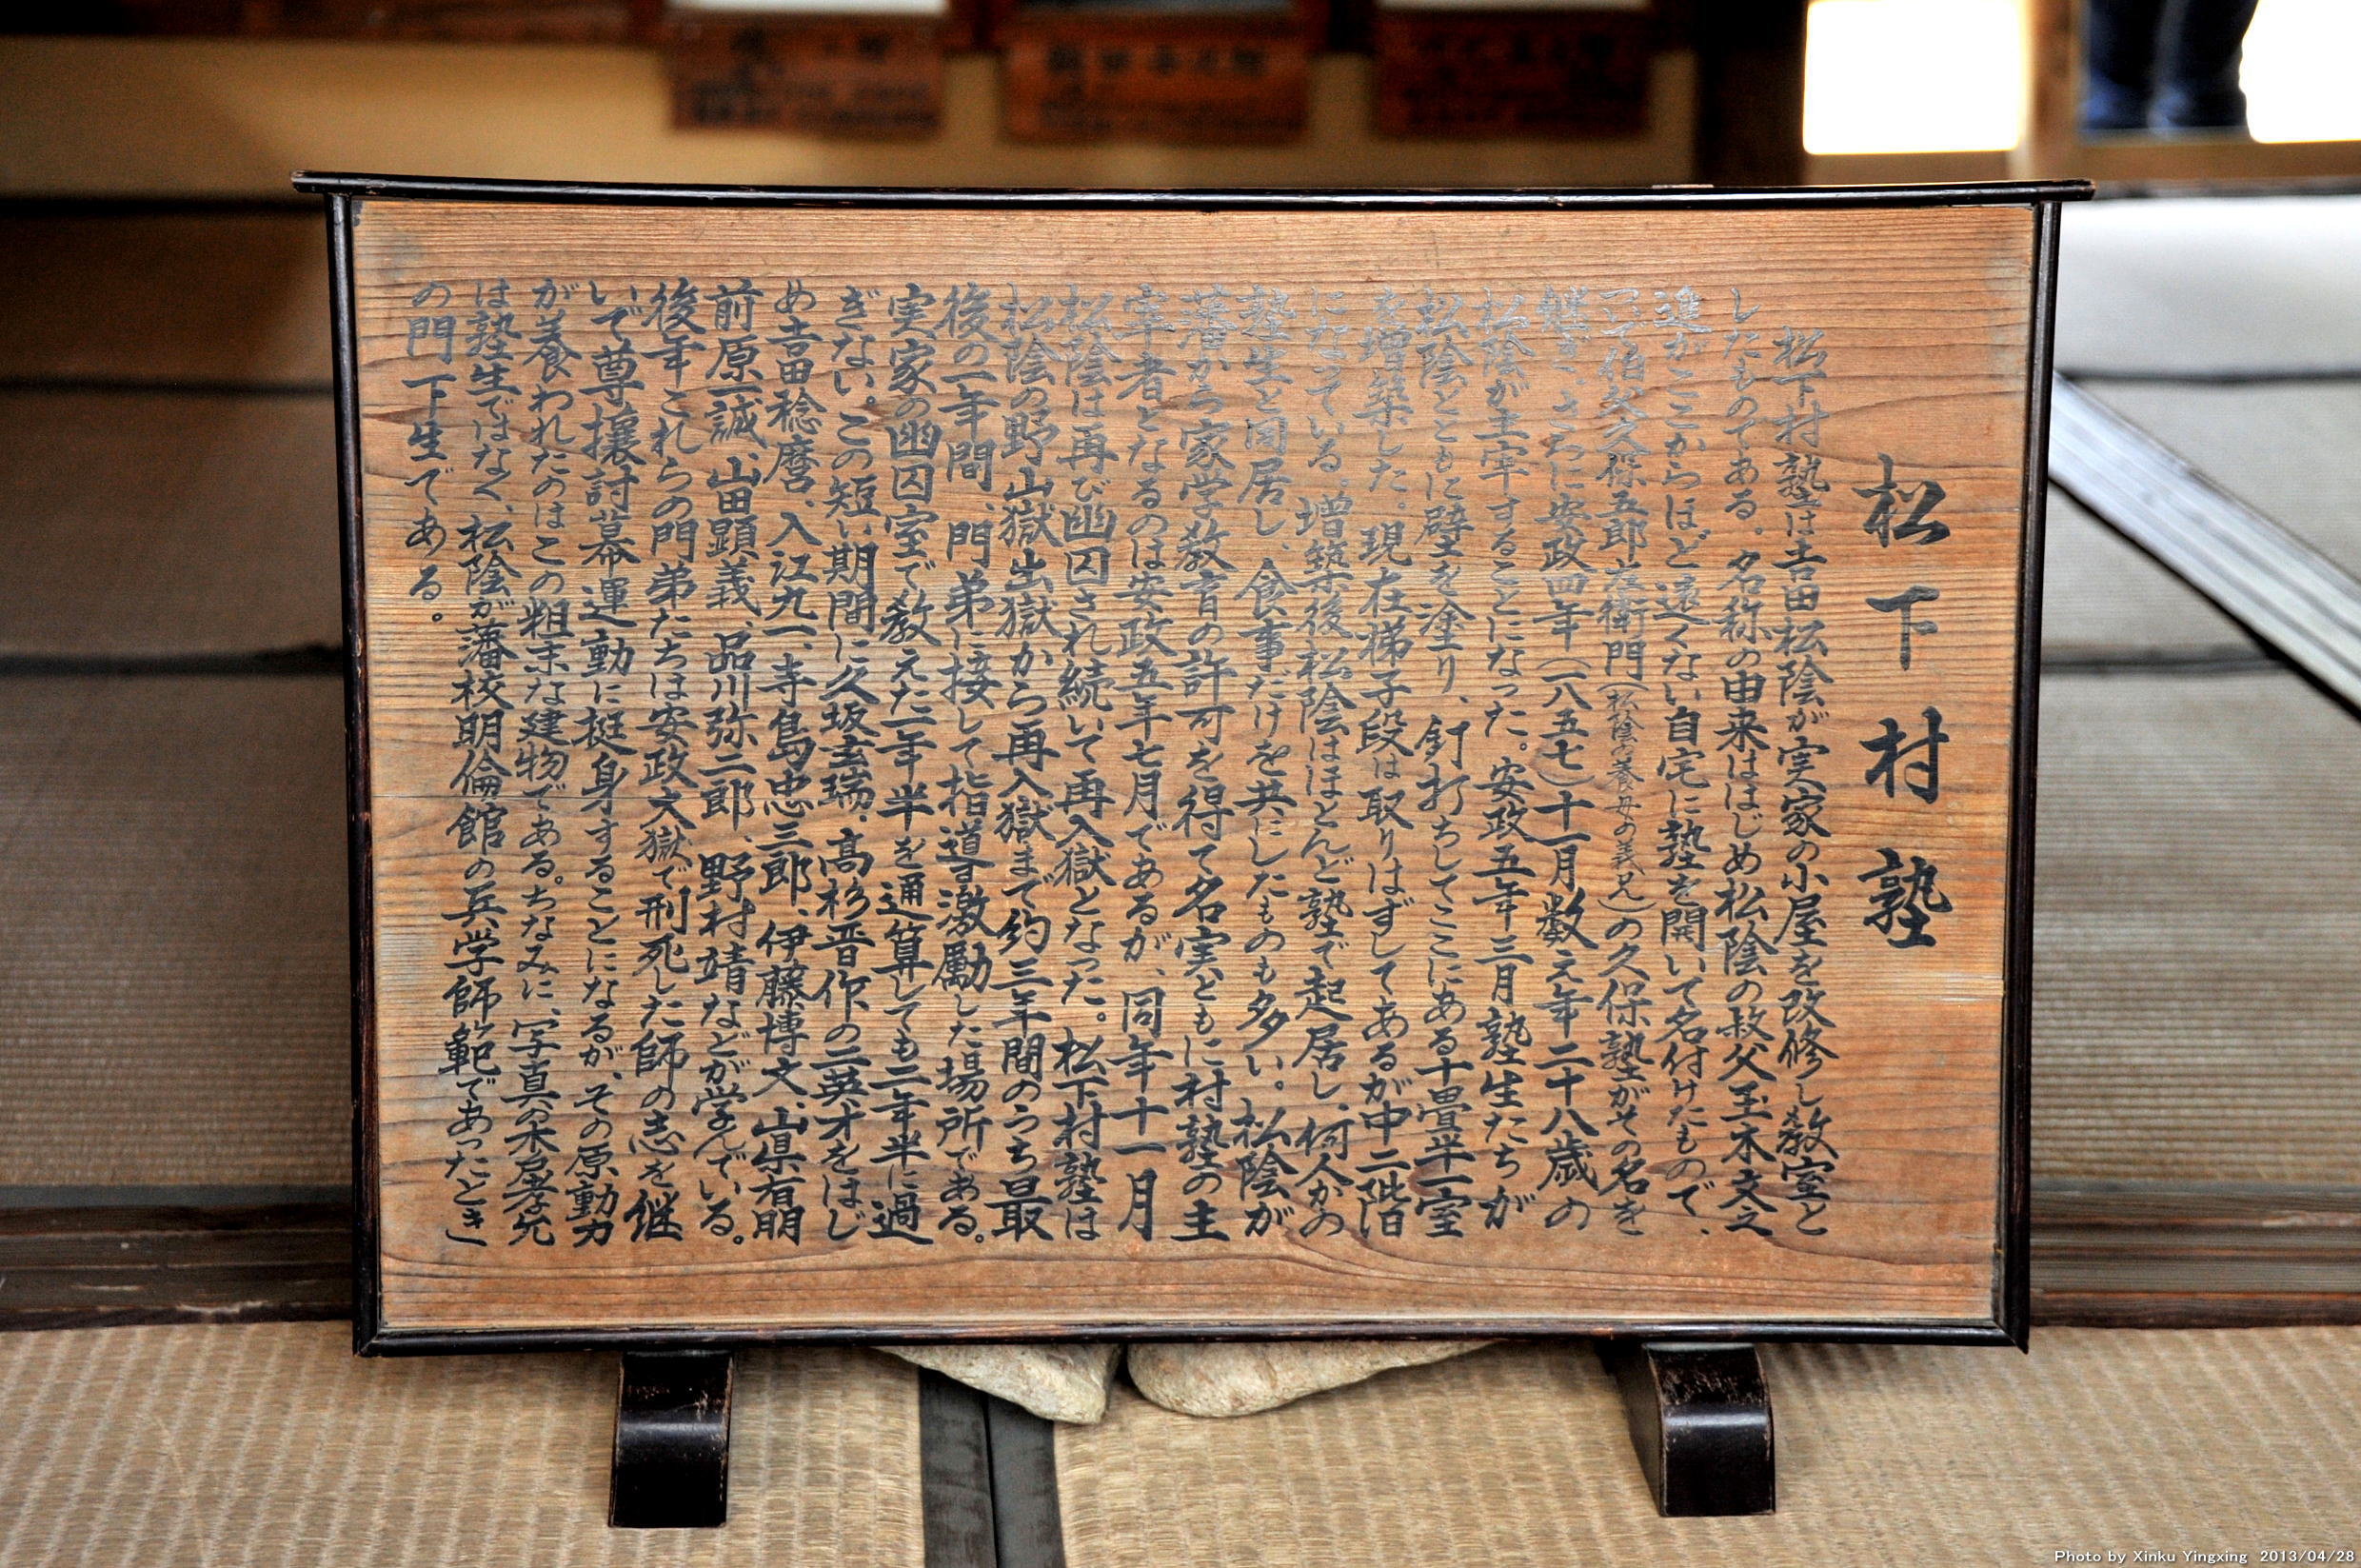 松下村塾
松下村塾は吉田松陰が実家の小屋を改修し教室と
したものである。名称の由来ははじめ松陰の叔父玉木文之
進がここからほど遠くない自宅に塾を開いて名付けたもので、
ついで伯父久保五郎左衛門(松陰の養母の義兄)の久保塾がその名を
継ぎ、さらに安政四年(一八五七)十一月数え年二十八歳の
松陰が主宰することになった。安政五年三月塾生たちが
松陰とともに壁を塗り、釘打ちしてここにある十畳半一室
を増築した。現在梯子段は取りはずしてあるが中二階
になっている。増築後松陰はほとんど塾で起居し、何人かの
塾生と同居し、食事だけを共にしたものも多い。松陰が
藩から家学教育の許可を得て名実ともに村塾の主
宰者となるのは安政五年七月であるが、同年十一月
松陰は再び幽囚され続いて再入獄となった。松下村塾は
松陰の野山獄出獄から再入獄まで約三年間のうち最
後の一年間、門弟に接して指導激励した場所である。
実家の幽囚室で教えた一年半を通算しても二年半に過
ぎない。この短い期間に久坂玄瑞、高杉晋作の二英才をはじ
め吉田稔麿、入江九一、寺島忠三郎、伊藤博文、山県有朋
前原一誠、山田顕義、品川弥二郎、野村靖などが学んでいる。
後年これらの門弟たちは安政大獄で刑死した師の志を継
いで尊攘討幕運動に挺身することになるが、その原動力
が養われたのはこの粗末な建物である。ちなみに、写真の木戸孝允
は塾生ではなく、松陰が藩校明倫館の兵学師範であったとき
の門下生である。
Photo by Xinku Yingxing 2013/04/28